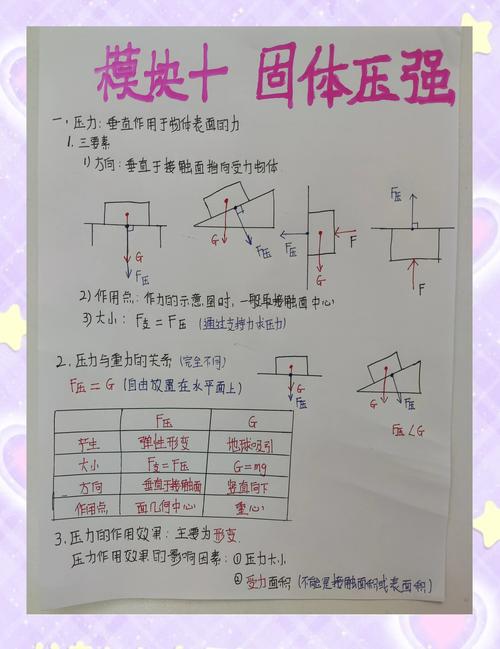 模块十 固体压强
一、压力：垂直作用于物体表面的力
1. 三要素
1) 方向：垂直于接触面指向受力物体
G
F压
G
F压
F压
F
G
F压
F
2) 作用点：作力的示意图时，一般取接触面中心
3) 大小：F支=F压 (通过支持力求压力)
2. 压力与重力的关系 (完全不同)
F压=G (自由放置在水平面上)
G
F压
G
F压
F压<G
F压 G
产生 弹性形变 地球吸引
大小 F支=F压 G=mg
方向 垂直于接触面 竖直向下
作用点 面几何中心 重心
3. 压力的作用效果：主要为形变.
压力作用效果的影响因素：① 压力大小
② 受力面积 (不能是接触面积或表面积)